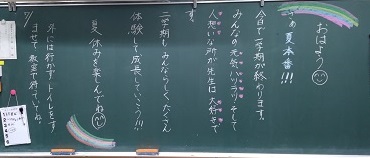 おはよう
夏本番!!!
今日で一学期が終わります。
みんなの元気ハツラツ、そして
人想いな所が先生は大好きで
す。
二学期も、みんならしくたくさん
体験して成長していこう!!!
夏休みを楽しんでね
外には行かず、トイレをす
ませて教室で待っていてね。